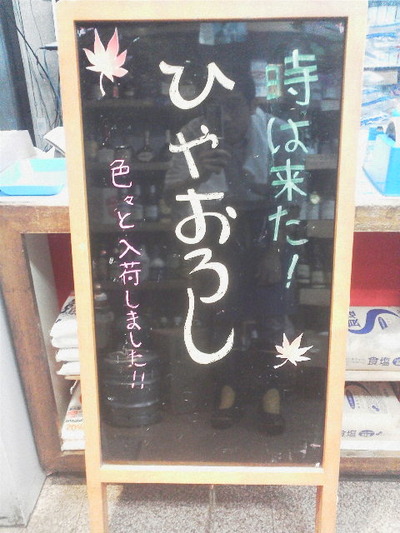 時は来た!
ひやおろし
色々と入荷しました!!
食塩